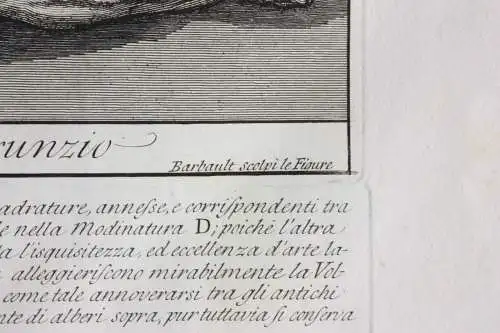 runzio
Barbault scolpì le Figure
adrature, anneſse, e corriſpondenti tra
e nella Modinatura D; poichè l'altra
a l'isquisitezza, ed eccellenza d'arte la-
alleggieriſcono mirabilmente la Vol-
come tale annoverarsi tra gli antichi
nte di alberi sopra, pur tuttavia ſi conſerva